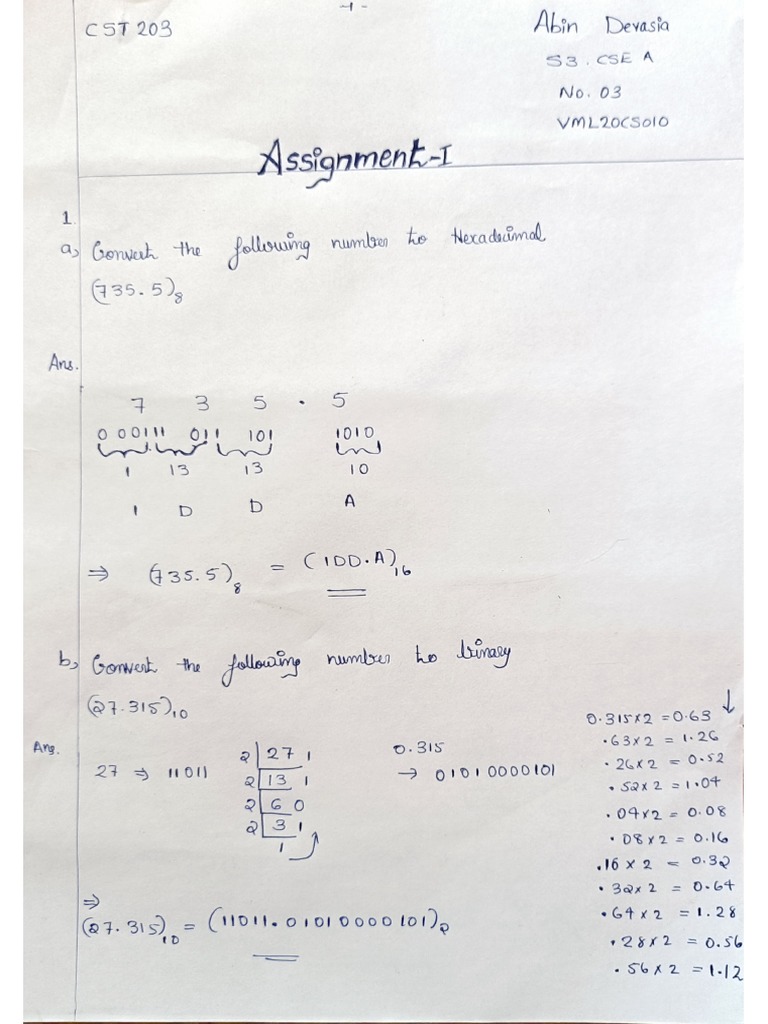 -1-
CST 203
Abin Devasia
S3. CSE A
No. 03
VML20CS010
Assignment-I
1.
a, Convert the following number to Hexadecimal
(735.5)8
Ans.
7 3 5 . 5
0 00111 011 101 1010
1 13 13 10
1 D D A
⇒ (735.5)8 = (1DD.A)16
b, Convert the following number to binary
(27.315)10
Ans.
27 ⇒ 11011
2 27 1
2 13 1
2 6 0
2 3 1
1
0.315
→ 01010000101
↓
0.315×2 = 0.63
.63×2 = 1.26
.26×2 = 0.52
.52×2 = 1.04
.04×2 = 0.08
.08×2 = 0.16
.16×2 = 0.32
.32×2 = 0.64
.64×2 = 1.28
.28×2 = 0.56
.56×2 = 1.12
⇒
(27.315)10 = (11011.01010000101)2